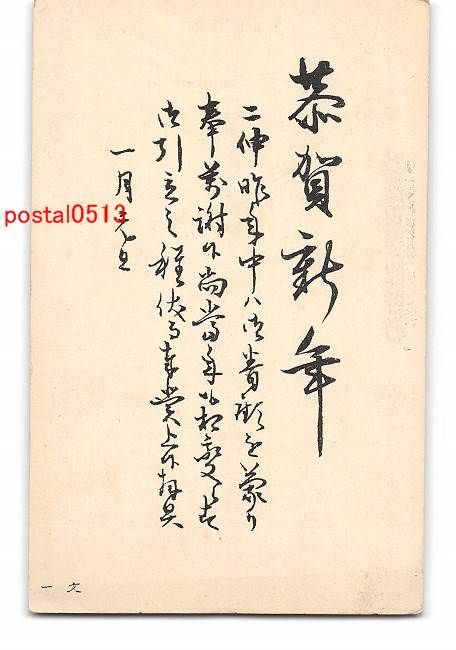 恭賀新年
二伸昨年中ハ御眷顧を蒙り
奉萬謝候尚當年も相変らず
御引立之程伏而奉願上候拝具
一月元旦
postal0513
一文